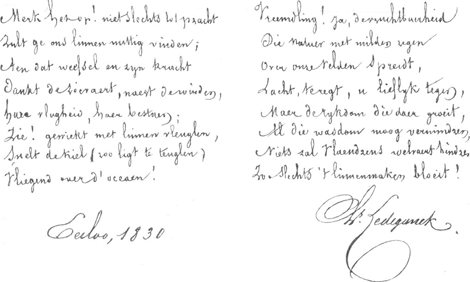 Merk hen op! niet slechts tot pracht
Zult ge ons linnen nuttig vinden;
Aen dat weefsel en zyn kracht
Dankt de zeevaert, naest de winden,
Haer vlugheid, haer bestaen;
Zie! gewiekt met linnen vleuglen,
Snelt de kiel (zoo ligt te teuglen)
Vliegend over d'oceaen!
Eecloo, 1830
Vreemdling! ja, de vruchtbaerheid
Die natuer met milden zegen
Over onze velden spreidt,
Lacht, te regt, u lieflyk tegen,
Maer de rykdom die daer groeit,
Al die wasdom moog verminderen,
Niets zal Vlaendrens welvaert hindren
Zoo slechts 't linnenmaken bloeit!
Ledeganck